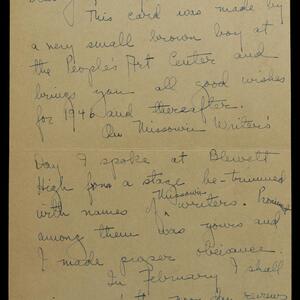 This card was made by
a very small brown boy at
the People's Art Center and
brings you all good wishes
for 1946 and thereafter.
On Missouri Writers'
Day I spoke at Blewett
High from a stage be-trimmed
with names of Missouri writers. Prominent
among them was yours and
I made proper obeisance.
In February I shall